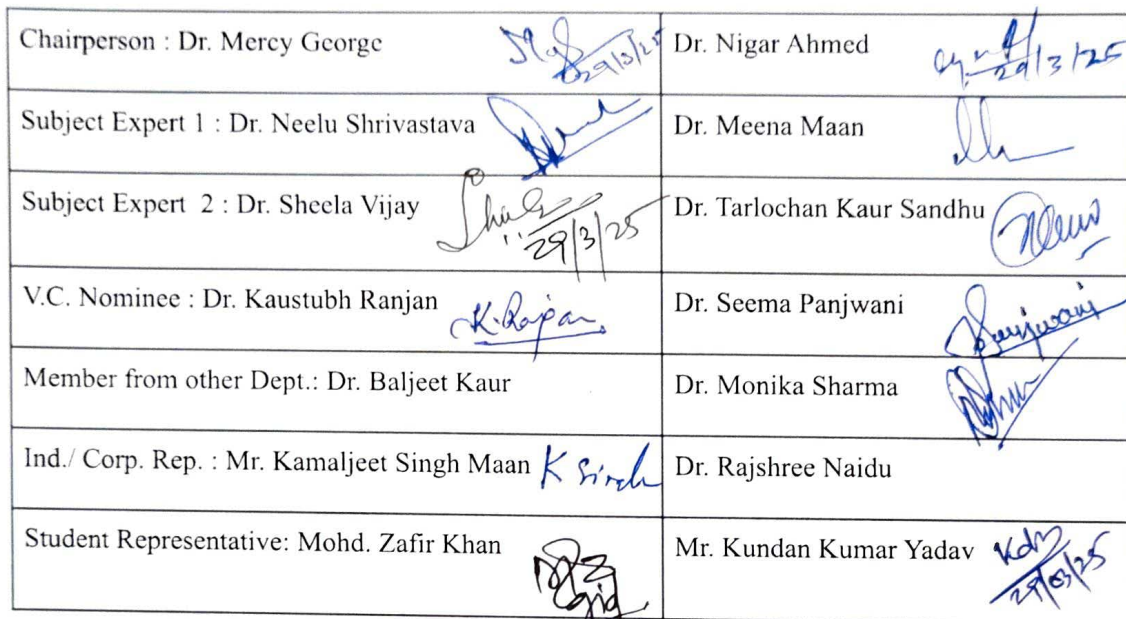 Chairperson : Dr. Mercy George
29/3/25
Dr. Nigar Ahmed
29/3/25
Subject Expert 1 : Dr. Neelu Shrivastava
Dr. Meena Maan
Subject Expert 2 : Dr. Sheela Vijay
29/3/25
Dr. Tarlochan Kaur Sandhu
V.C. Nominee : Dr. Kaustubh Ranjan
K. Ranjan
Dr. Seema Panjwani
Panjwani
Member from other Dept.: Dr. Baljeet Kaur
Dr. Monika Sharma
Ind./ Corp. Rep. : Mr. Kamaljeet Singh Maan
K Singh
Dr. Rajshree Naidu
Student Representative: Mohd. Zafir Khan
Mr. Kundan Kumar Yadav
29/03/25